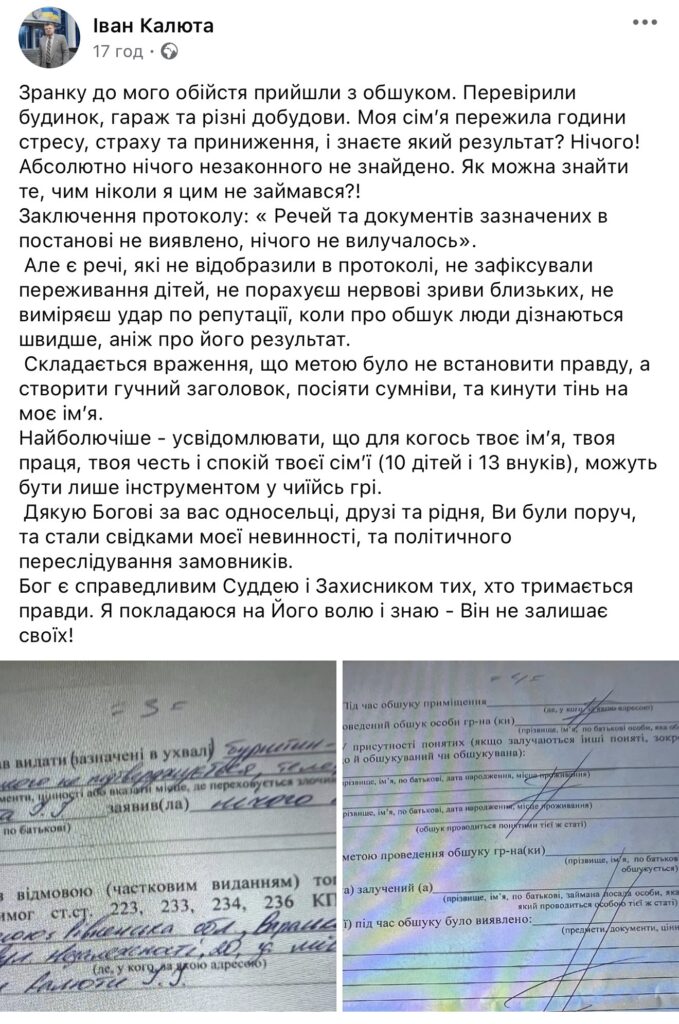 Іван Калюта
17 год
Зранку до мого обійстя прийшли з обшуком. Перевірили
будинок, гараж та різні добудови. Моя сім’я пережила години
стресу, страху та приниження, і знаєте який результат? Нічого!
Абсолютно нічого незаконного не знайдено. Як можна знайти
те, чим ніколи я цим не займався?!
Заключення протоколу: « Речей та документів зазначених в
постанові не виявлено, нічого не вилучалось».
Але є речі, які не відобразили в протоколі, не зафіксували
переживання дітей, не порахуєш нервові зриви близьких, не
виміряєш удар по репутації, коли про обшук люди дізнаються
швидше, аніж про його результат.
Складається враження, що метою було не встановити правду, а
створити гучний заголовок, посіяти сумніви, та кинути тінь на
моє ім’я.
Найболючіше - усвідомлювати, що для когось твоє ім’я, твоя
праця, твоя честь і спокій твоєї сім’ї (10 дітей і 13 внуків), можуть
бути лише інструментом у чиїйсь грі.
Дякую Богові за вас односельці, друзі та рідня, Ви були поруч,
та стали свідками моєї невинності, та політичного
переслідування замовників.
Бог є справедливим Суддею і Захисником тих, хто тримається
правди. Я покладаюся на Його волю і знаю - Він не залишає
своїх!
= 3 =
ав видати (зазначені в ухвалі)
менти, цінності або вказати місце, де переховується злочин
заявив(ла) нічого
по батькові)
з відмовою (частковим виданням) тог
имог ст.ст. 223, 233, 234, 236 КП
(де, у кого, за якою адресою)
Калюти
= 4 =
Під час обшуку приміщення
(де, у кого, за якою адресою)
роведений обшук особи гр-на (ки)
(прізвище, ім’я, по батькові особи, яка об
у присутності понятих (якщо залучаються інші поняті, зокр
о й обшукуваний чи обшукувана):
прізвище, ім’я, по батькові, дата народження, місце проживання)
прізвище, ім’я, по батькові, дата народження, місце проживання)
(обшук проводиться понятими тієї ж статі)
метою проведення обшуку гр-на(ки)
(прізвище, ім’я, по батькові
обшукується)
а) залучений (а)
(прізвище, ім’я, по батькові, займана посада особи, яка
який проводиться особою тієї ж статі)
ї) під час обшуку було виявлено:
(предмети, документи, цінн